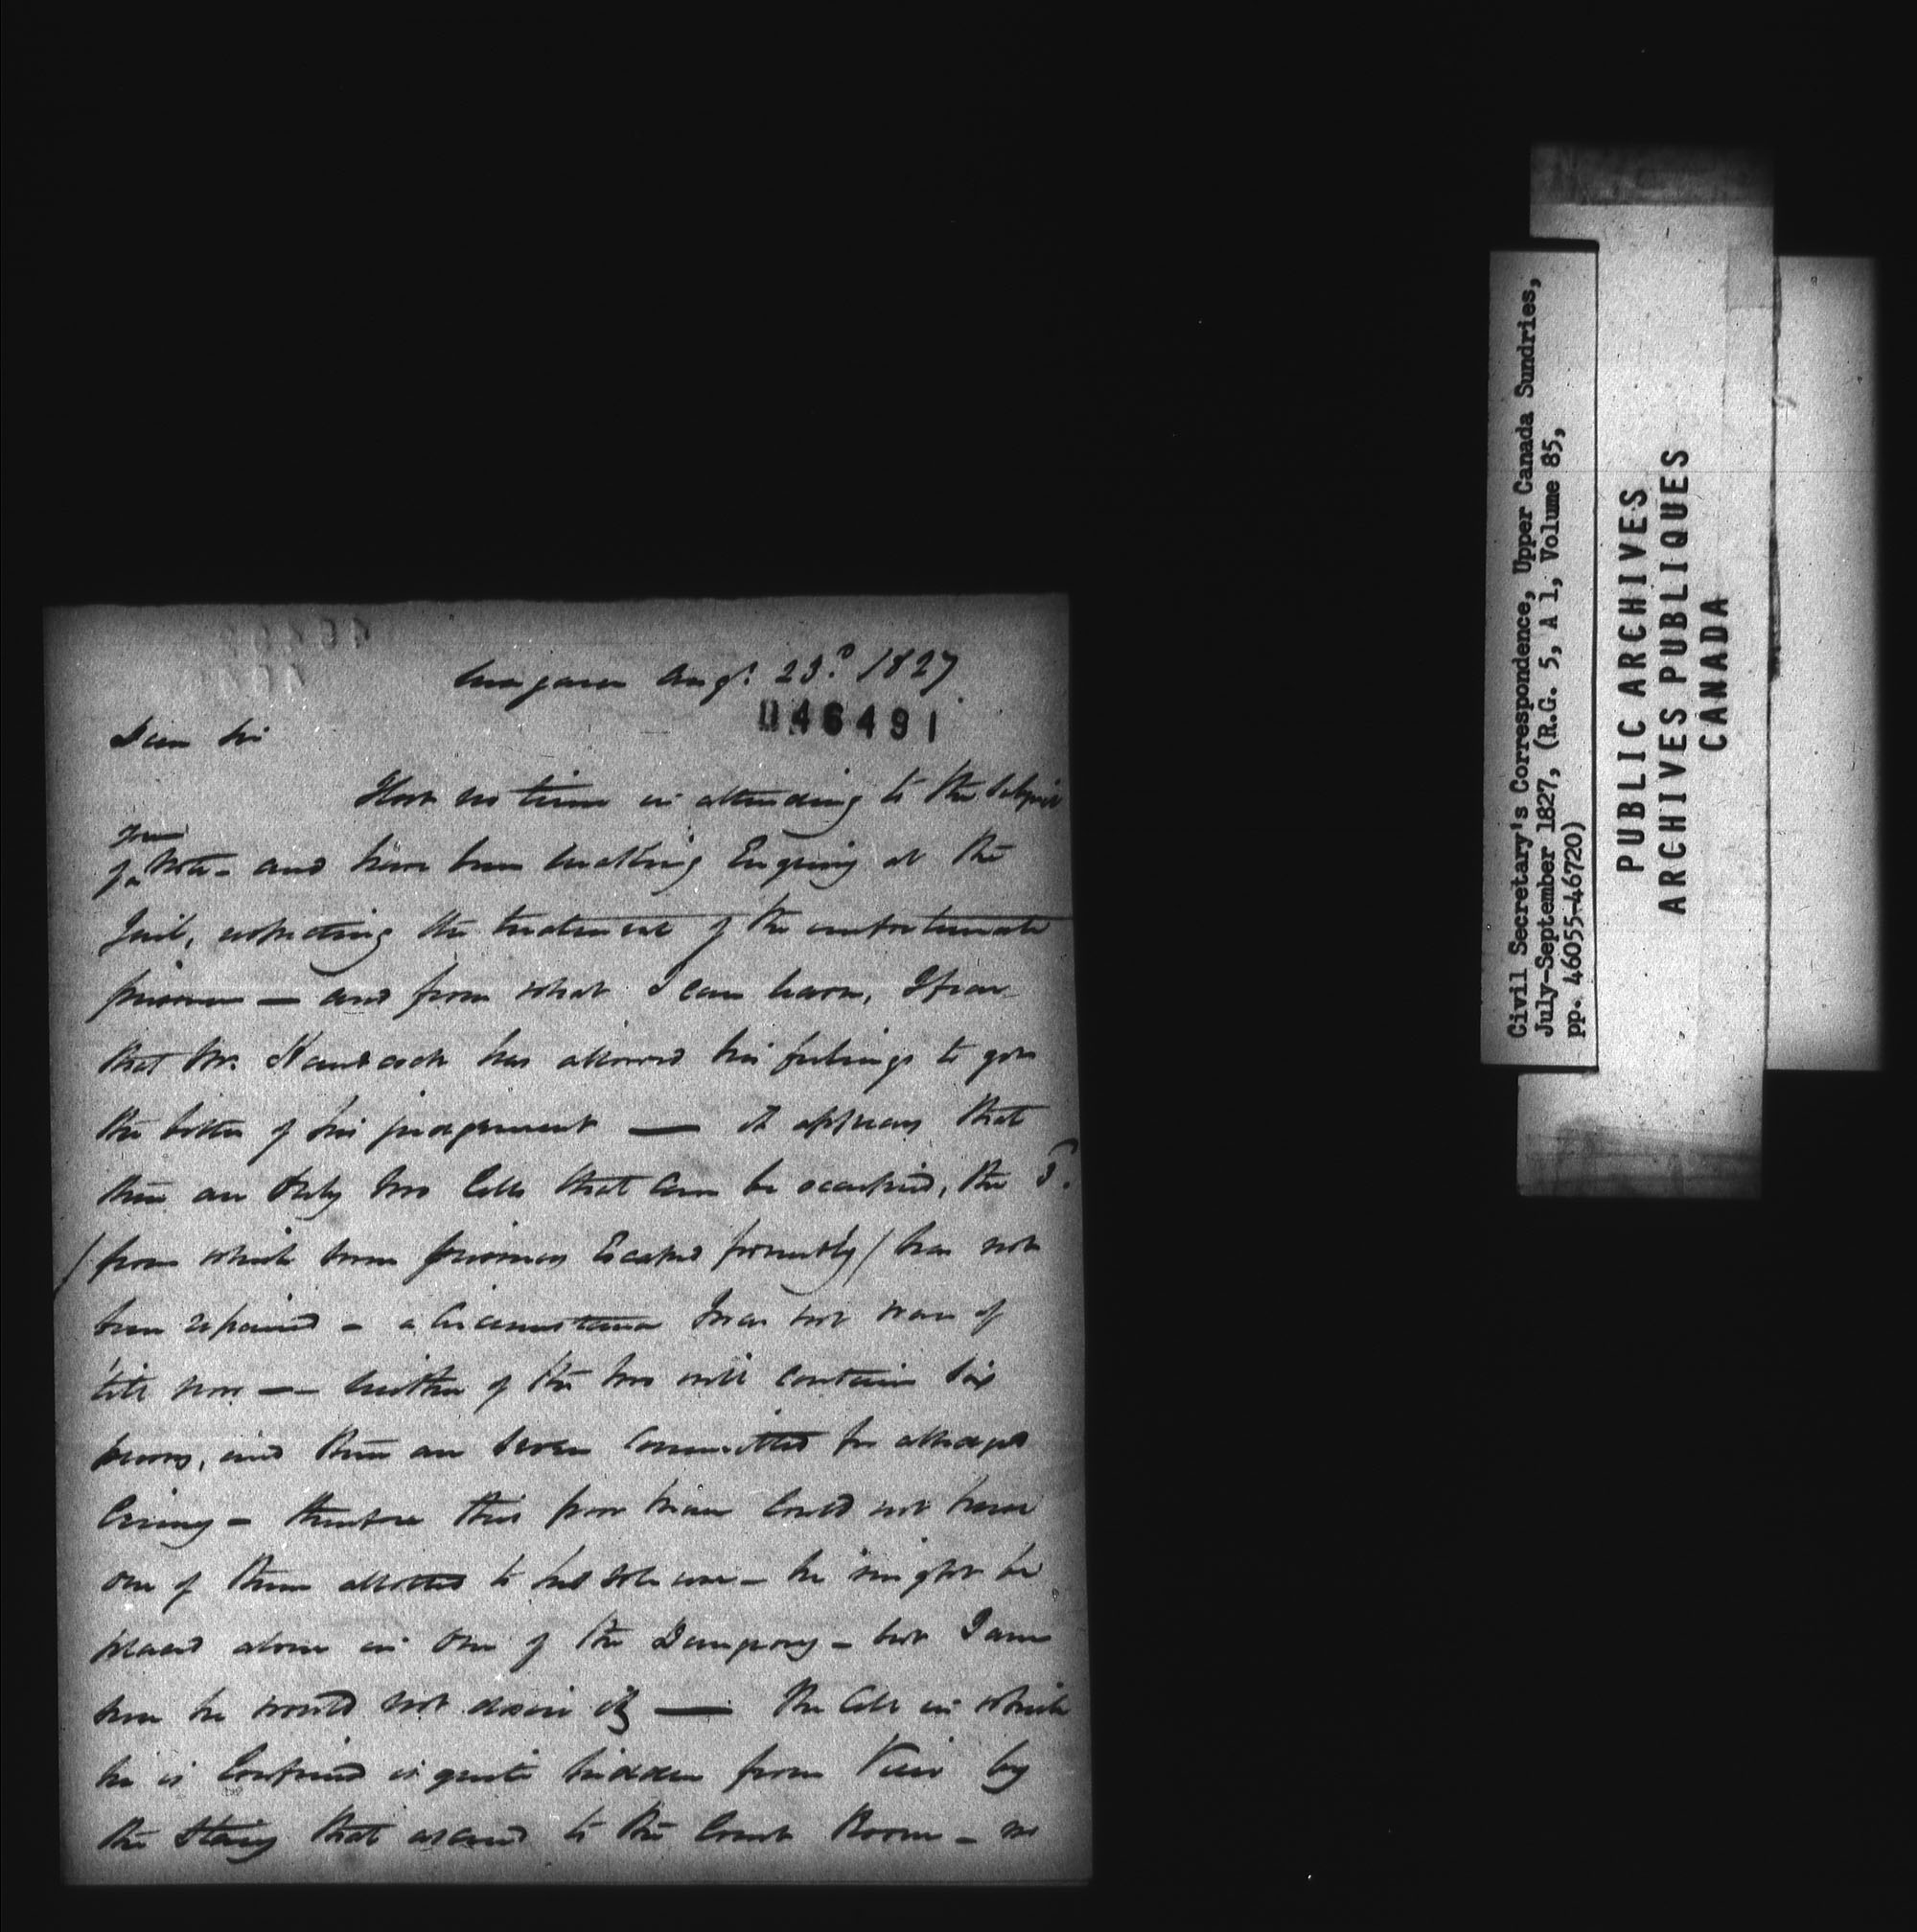 Niagara Augt. 23d. 1827
046491
Dear Sir
I lost no time in attending to the subject
your
of note - and have been making Enquiry at the
Jail, respecting the treatment of the unfortunate
prisoner — and from what I can learn, I fear
that Mr. Handcock has allowed his feelings to get
the better of his judgement — it appears that
there are Only two Cells that can be occupied, the 3d.
/ from which some prisoners Escaped formerly / has not
been repaired - a Circumstance I was not ware of
till now — neither of the two will contain six
persons, and there are seven Committed for alledged
Crimes - therefore this poor man Could not have
one of them allotted to his sole use - he might be
placed alone in One of the Dungeons - but I am
sure he would not desire it — the Cell in which
he is Confined is quite hidden from View by
the Stairs that ascend to the Court Room - no
Civil Secretary's Correspondence, Upper Canada Sundries,
July-September 1827, (R.G. 5, A 1, Volume 85,
pp. 46055-46720)
PUBLIC ARCHIVES
ARCHIVES PUBLIQUES
CANADA